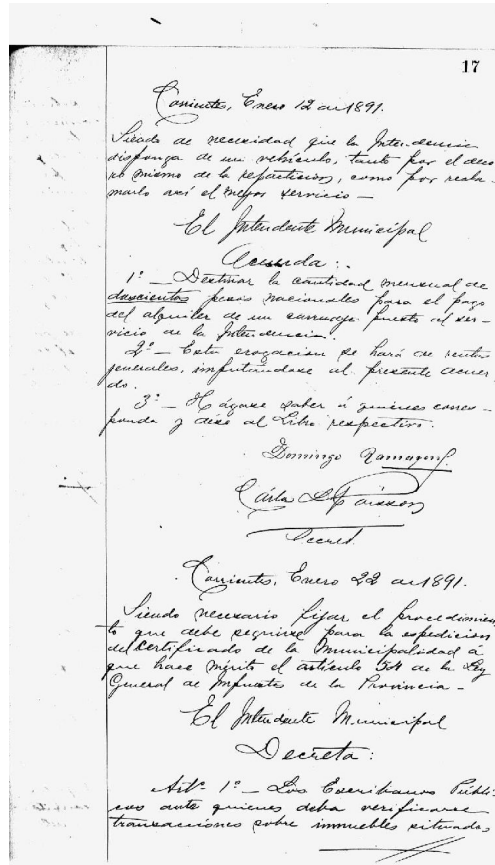 17
Corrientes, Enero 12 de 1891.
Siendo de necesidad que la Intendencia
disponga de un vehículo, tanto por el deco
ro mismo de la reparticion, como por recla-
marlo así el mejor servicio –
El Intendente Municipal
Acuerda:
1º – Destinar la cantidad mensual de
doscientos pesos nacionales para el pago
del alquiler de un carruaje puesto al ser-
vicio de la Intendencia.
2º – Esta erogacion se hará de rentas
generales, imputándose al presente acuer
do.
3º – Hágase saber á quienes corres-
ponda y dése al Libro respectivo.
Domingo
Secret.
Corrientes, Enero 22 de 1891.
Siendo necesario fijar el procedimien
to que debe seguirse para la espedicion
del certificado de la Municipalidad á
que hace mérito el artículo 54 de la Ley
General de Impuestos de la Provincia –
El Intendente Municipal
Decreta:
Artº 1º – Los Escribanos Públi-
cos ante quienes deba verificarse
transacciones sobre inmuebles situados